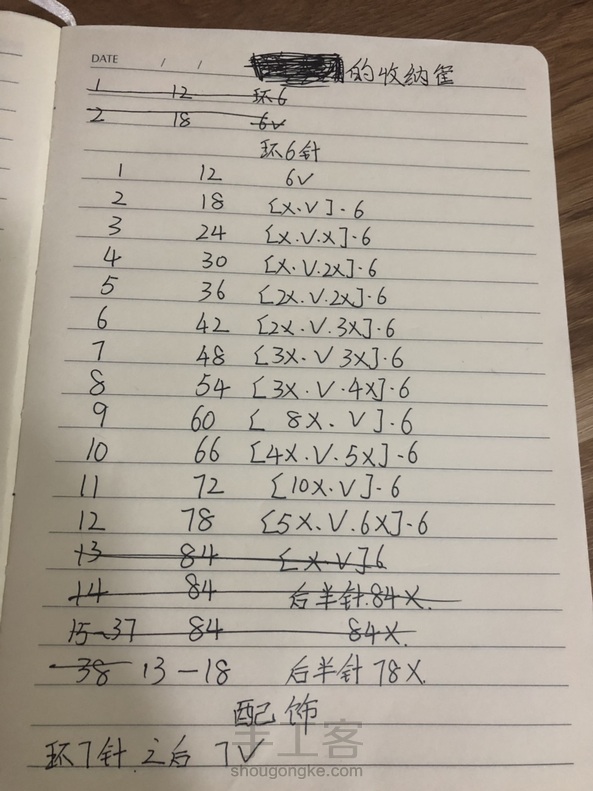 DATE / /
的收纳筐
1 12 环6
2 18 6V
环6针
1 12 6V
2 18 [X.V].6
3 24 [X.V.X].6
4 30 [X.V.2X].6
5 36 [2X.V.2X].6
6 42 [2X.V.3X].6
7 48 [3X.V 3X].6
8 54 [3X.V.4X].6
9 60 [8X.V].6
10 66 [4X.V.5X].6
11 72 [10X.V].6
12 78 [5X.V.6X].6
13 84 [X.V]6
14 84 后半针.84X.
15-37 84 84X.
38 13-18 后半针78X.
配饰
环7针.之后 7V
手工客
shougongke.com